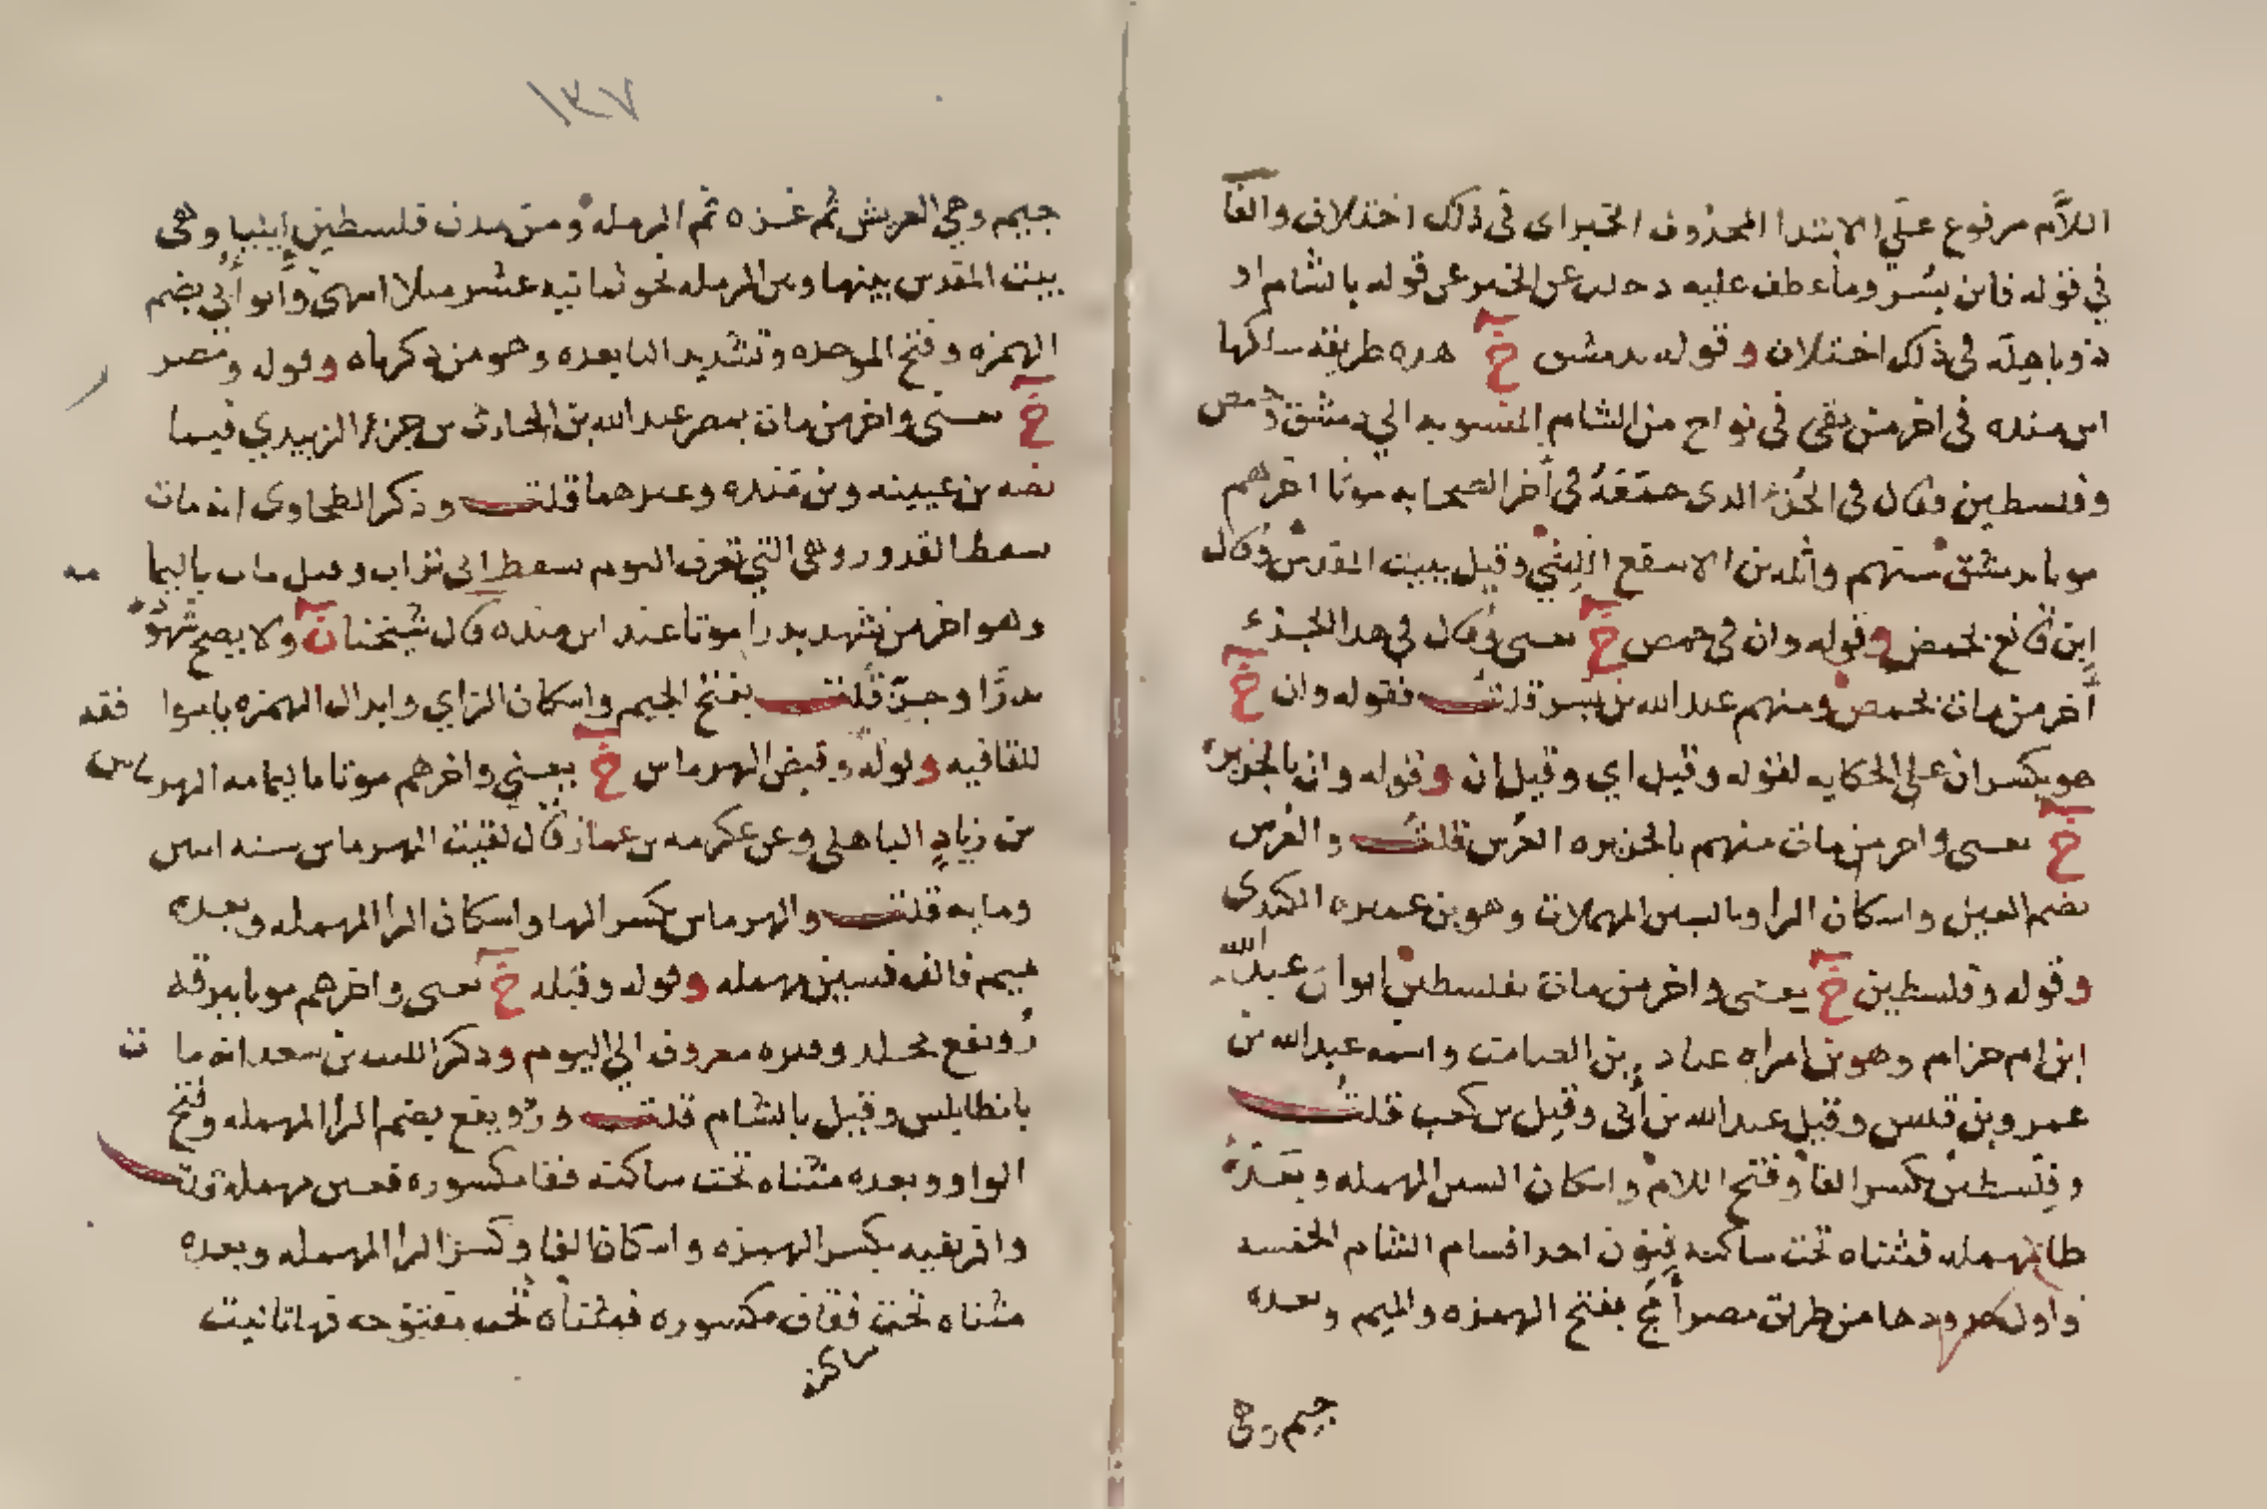 اللام مرفوع على الابتدا المحذوف الخبر اى فى ذلك اختلاف والفا
في قوله فابن بسر وما عطف عليه دخلت عن الخبر عن قوله بالشام او
ذو باهله فى ذلك اختلاف وقوله بدمشق خ هده طريقه سلكها
ابن منده فى اخر من بقى فى نواح من الشام المنسوبه الى دمشق وحمص
وفلسطين وقال فى الجزء الدى جمعه فى اخر الصحابه موتا اخرهم
موتا بدمشق منهم واثله بن الاسقع الليثي وقيل ببيت المقدس وقال
ابن قانع بحمص وقوله وان في حمص خ يعنى وقال في هدا الجزء
اخر من مات بحمص ومنهم عبد الله بن بسر قلت فقوله وان خ
هو بكسر ان على الحكايه لقوله وقيل اي وقيل ان وقوله وان بالجزيره
خ يعنى واخر من مات منهم بالجزيره العرس قلت والعرس
بضم العين واسكان الرا وبالسين المهملات وهو بن عميره الكندى
وقوله وفلسطين خ يعنى واخر من مات بفلسطين ابو ابى عبد الله
ابن ام حزام وهو بن امراه عباد بن الصامت واسمه عبد الله بن
عمرو بن قيس وقيل عبد الله بن أبى وقيل بن كعب قلت
وفلسطين بكسر الفا وفتح اللام واسكان السين المهمله وبعده
طا مهمله فمثناه تحت ساكنه فنون احد اقسام الشام الخمسه
واول حدودها من طريق مصر أمج بفتح الهمزه والميم وبعده
جيم وهى
١٣٧
جيم وهي العريش ثم غزه ثم الرمله ومن مدن فلسطين إيليا وهى
بيت المقدس بينها وبين الرمله نحو ثمانيه عشر ميلا انتهى وأبو أبي بضم
الهمزه وفتح الموحده وتشديد اليا بعده وهو من ذكرناه وقوله ومصر
خ يعنى واخر من مات بمصر عبد الله بن الحارث بن جزء الزبيدي فيما
قاله بن عيينه وبن منده وغيرهما قلت وذكر الطحاوى انه مات
بسفط القدور وهى التي تعرف اليوم بسفط ابى تراب وقيل مات باليمامه
وهو اخر من شهد بدرا موتا عند ابن منده قال شيخنا ن ولا يصح شهوده
بدرًا وجزء قلت بفتح الجيم واسكان الزاي وابدال الهمزه يا سوا فقد
للقافيه وقوله وقبض الهرماس خ يعني واخرهم موتا باليمامه الهرماس
بن زياد الباهلى وعن عكرمه بن عمار قال لقيت الهرماس سنه اثنين
ومايه قلت والهرماس بكسر الها واسكان الرا المهمله وبعده
ميم فالف فسين مهمله وقوله وقبله خ يعنى واخرهم موتا ببرقه
رويفع بحلد وقبره معروف الى اليوم وذكر الليث بن سعد انه مات
بانطابلس وقيل بالشام قلت ورويفع بضم الرا المهمله وفتح
الواو وبعده مثناه تحت ساكنه ففا مكسوره فعين مهمله قلت
وافريقيه بكسر الهمزه واسكان الفا وكسر الرا المهمله وبعده
مثناه تحت فقاف مكسوره فمثناه تحت مفتوحه فها تانيث